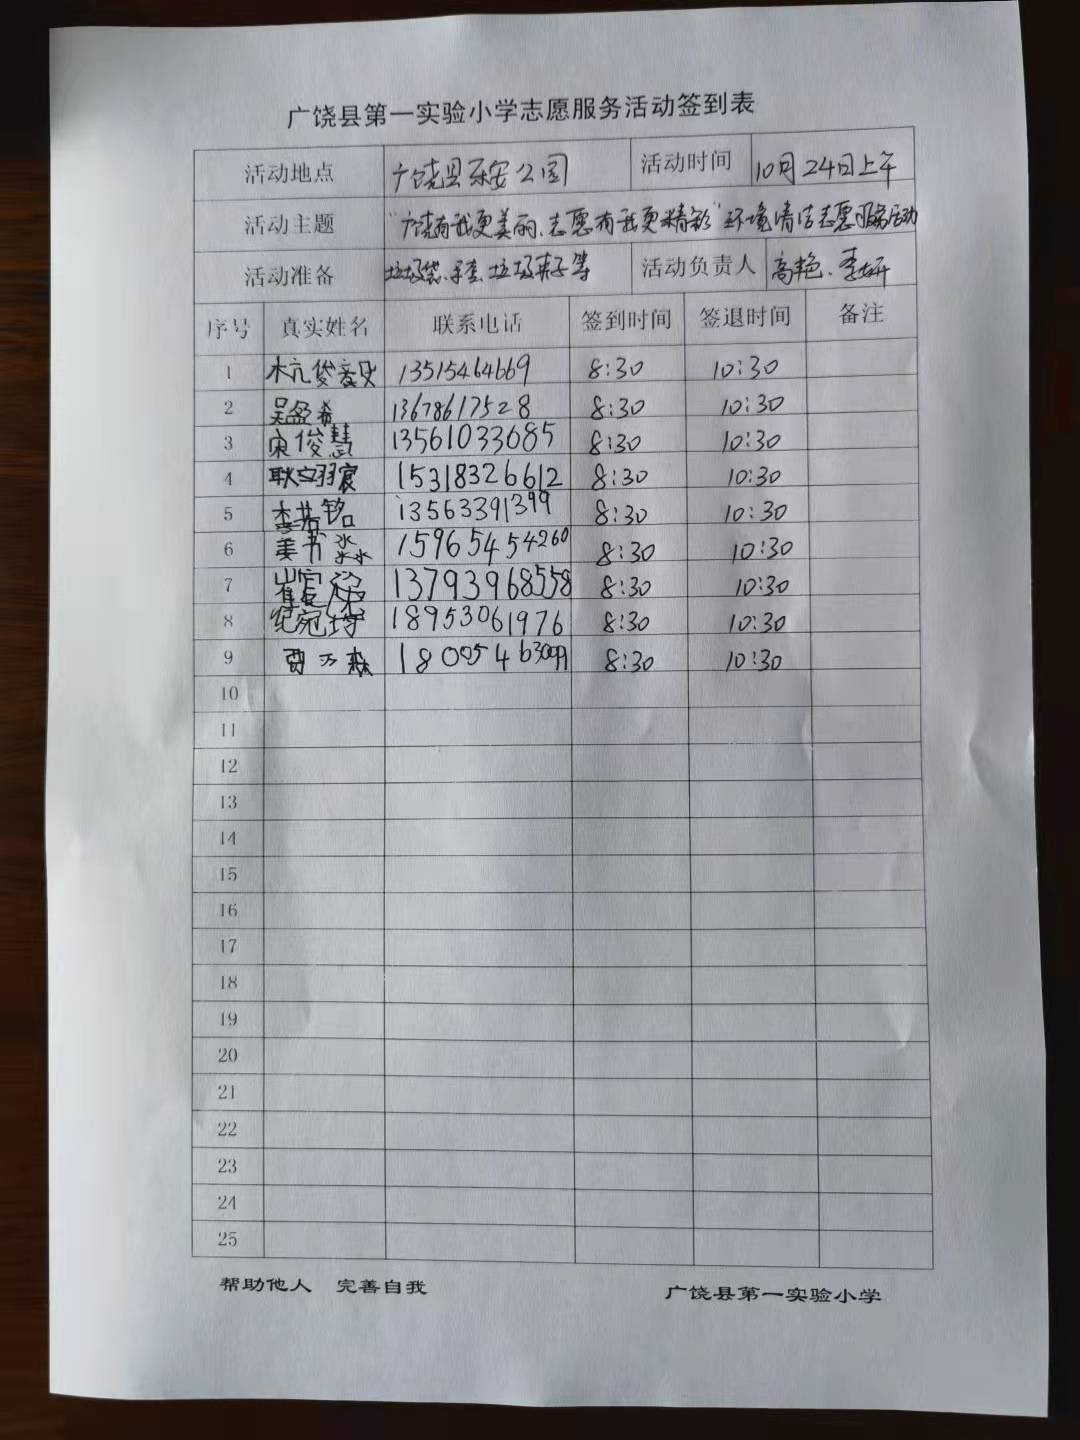 广饶县第一实验小学志愿服务活动签到表
活动地点 广饶县乐安公园 活动时间 10月24日上午
活动主题 “广饶有我更美丽、志愿有我更精彩”环境清洁志愿服务活动
活动准备 垃圾袋、手套、垃圾夹子等 活动负责人 高艳、李妍
序号 真实姓名 联系电话 签到时间 签退时间 备注
1 杭俊毅 13515464669 8:30 10:30
2 吴盈希 13678617528 8:30 10:30
3 宋俊慧 13561033685 8:30 10:30
4 耿立羽宸 15318326612 8:30 10:30
5 李若铭 13563391399 8:30 10:30
6 姜书淼 15965454260 8:30 10:30
7 崔 13793968558 8:30 10:30
8 纪宛埼 18953061976 8:30 10:30
9 贾万森 8:30 10:30
10
11
12
13
14
15
16
17
18
19
20
21
22
23
24
25
帮助他人 完善自我 广饶县第一实验小学